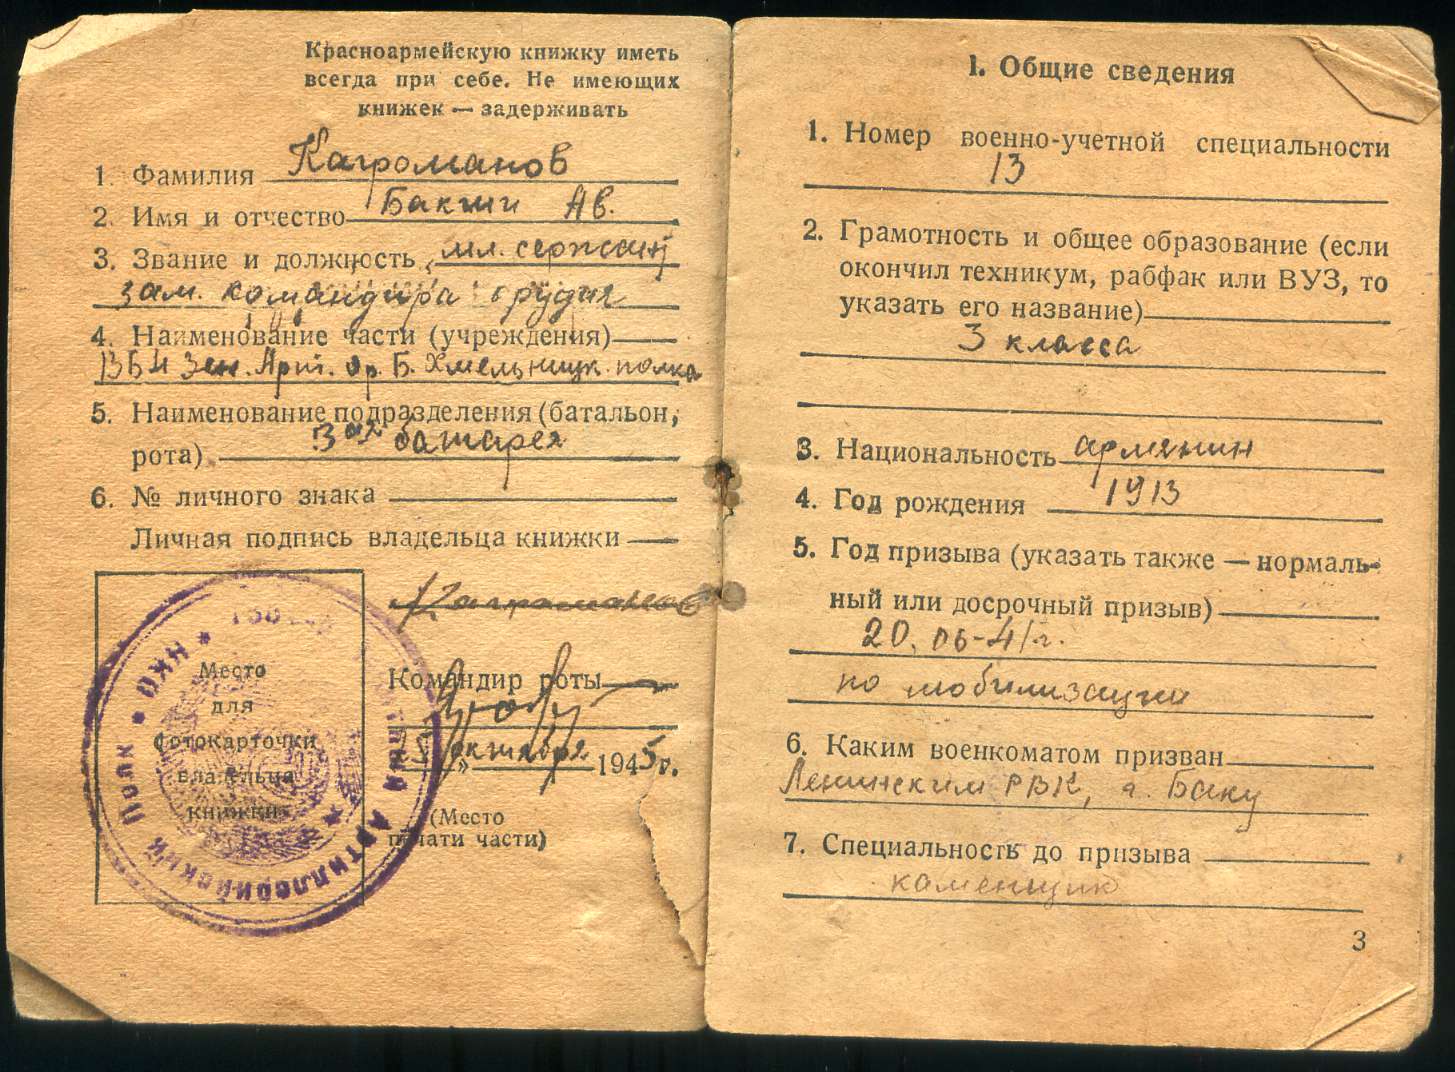 Красноармейскую книжку иметь
всегда при себе. Не имеющих
книжек — задерживать
1. Фамилия Каграманов
2. Имя и отчество Бакши Ав.
3. Звание и должность мл. сержант
зам. командира орудия
4. Наименование части (учреждения)
1364 Зен. Арт. ор. Б. Хмельницк. полка
5. Наименование подразделения (батальон,
рота) 3ая батарея
6. № личного знака
Личная подпись владельца книжки
Каграманов
Место
для
фотокарточки
владельца
книжки
Командир роты
октября 1945 г.
(Место
печати части)
Артиллерийский Полк * НКО *
I. Общие сведения
1. Номер военно-учетной специальности
13
2. Грамотность и общее образование (если
окончил техникум, рабфак или ВУЗ, то
указать его название)
3 класса
3. Национальность армянин
4. Год рождения 1913
5. Год призыва (указать также — нормаль-
ный или досрочный призыв)
20. 06-41 г.
по мобилизации
6. Каким военкоматом призван
Ленинским РВК, г. Баку
7. Специальность до призыва
каменщик
3